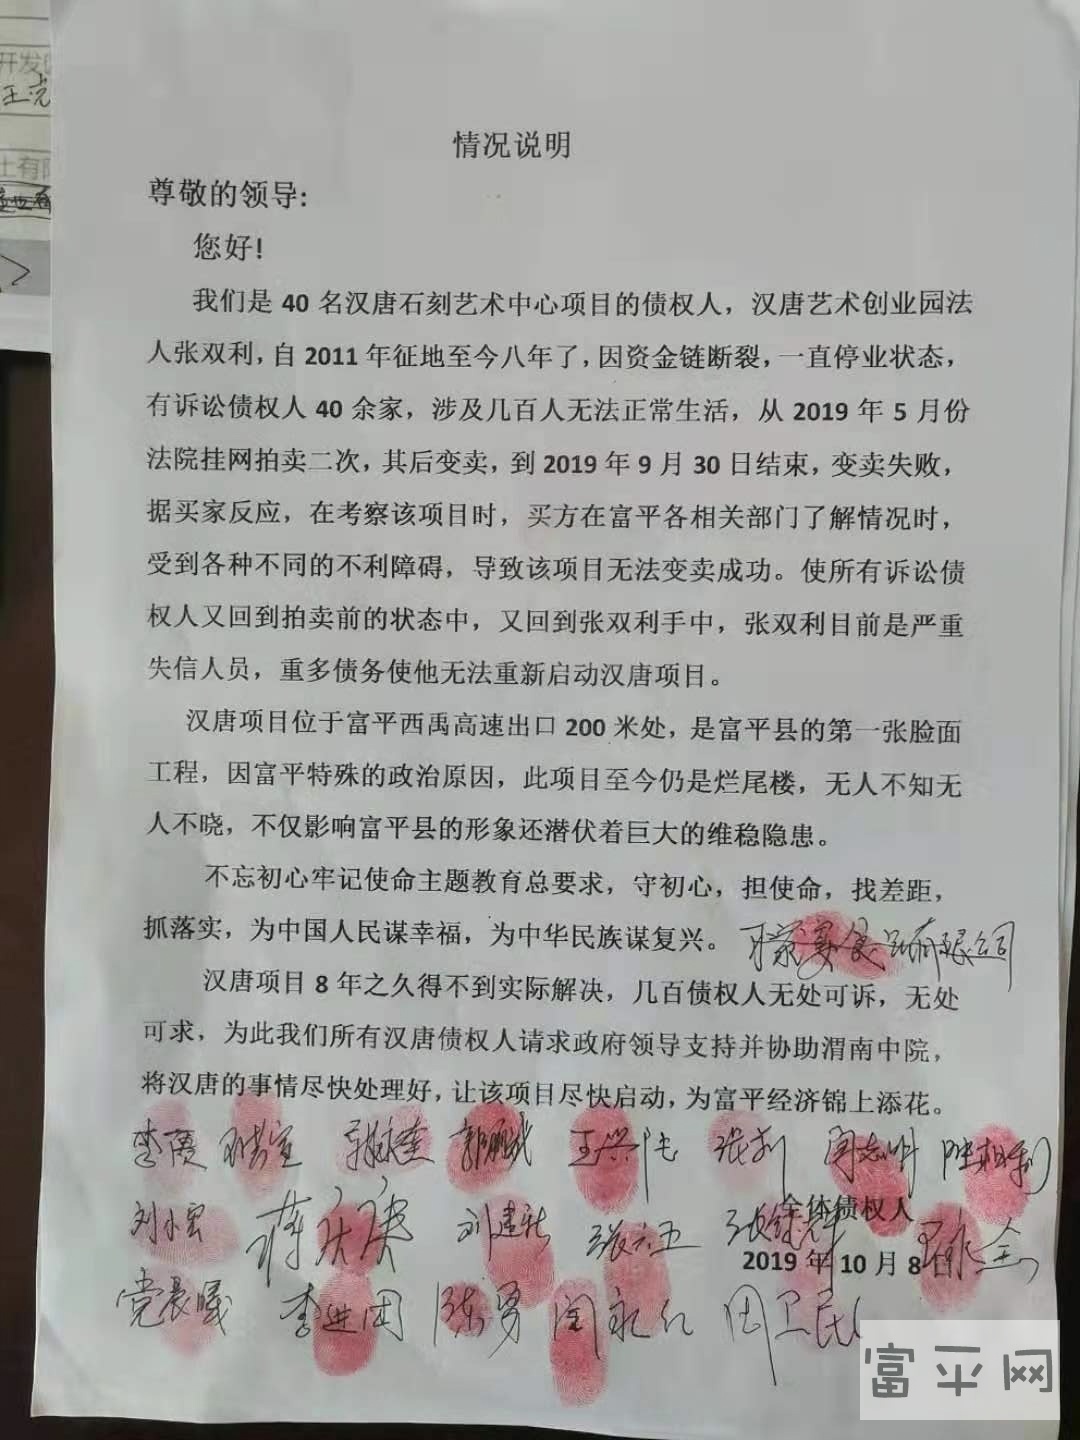 开发
王
土有限
情况说明
尊敬的领导:
您好!
我们是 40 名汉唐石刻艺术中心项目的债权人，汉唐艺术创业园法
人张双利，自 2011 年征地至今八年了，因资金链断裂，一直停业状态，
有诉讼债权人 40 余家，涉及几百人无法正常生活，从 2019 年 5 月份
法院挂网拍卖二次，其后变卖，到 2019 年 9 月 30 日结束，变卖失败，
据买家反应，在考察该项目时，买方在富平各相关部门了解情况时，
受到各种不同的不利障碍，导致该项目无法变卖成功。使所有诉讼债
权人又回到拍卖前的状态中，又回到张双利手中，张双利目前是严重
失信人员，重多债务使他无法重新启动汉唐项目。
汉唐项目位于富平西禹高速出口 200 米处，是富平县的第一张脸面
工程，因富平特殊的政治原因，此项目至今仍是烂尾楼，无人不知无
人不晓，不仅影响富平县的形象还潜伏着巨大的维稳隐患。
不忘初心牢记使命主题教育总要求，守初心，担使命，找差距，
抓落实，为中国人民谋幸福，为中华民族谋复兴。
食品有限公司
汉唐项目 8 年之久得不到实际解决，几百债权人无处可诉，无处
可求，为此我们所有汉唐债权人请求政府领导支持并协助渭南中院，
将汉唐的事情尽快处理好，让该项目尽快启动，为富平经济锦上添花。
全体债权人
刘小宏 刘建龙
2019 年 10 月 8 日
党晨曦 李进国 陈勇 闫永红 周卫民
富平网